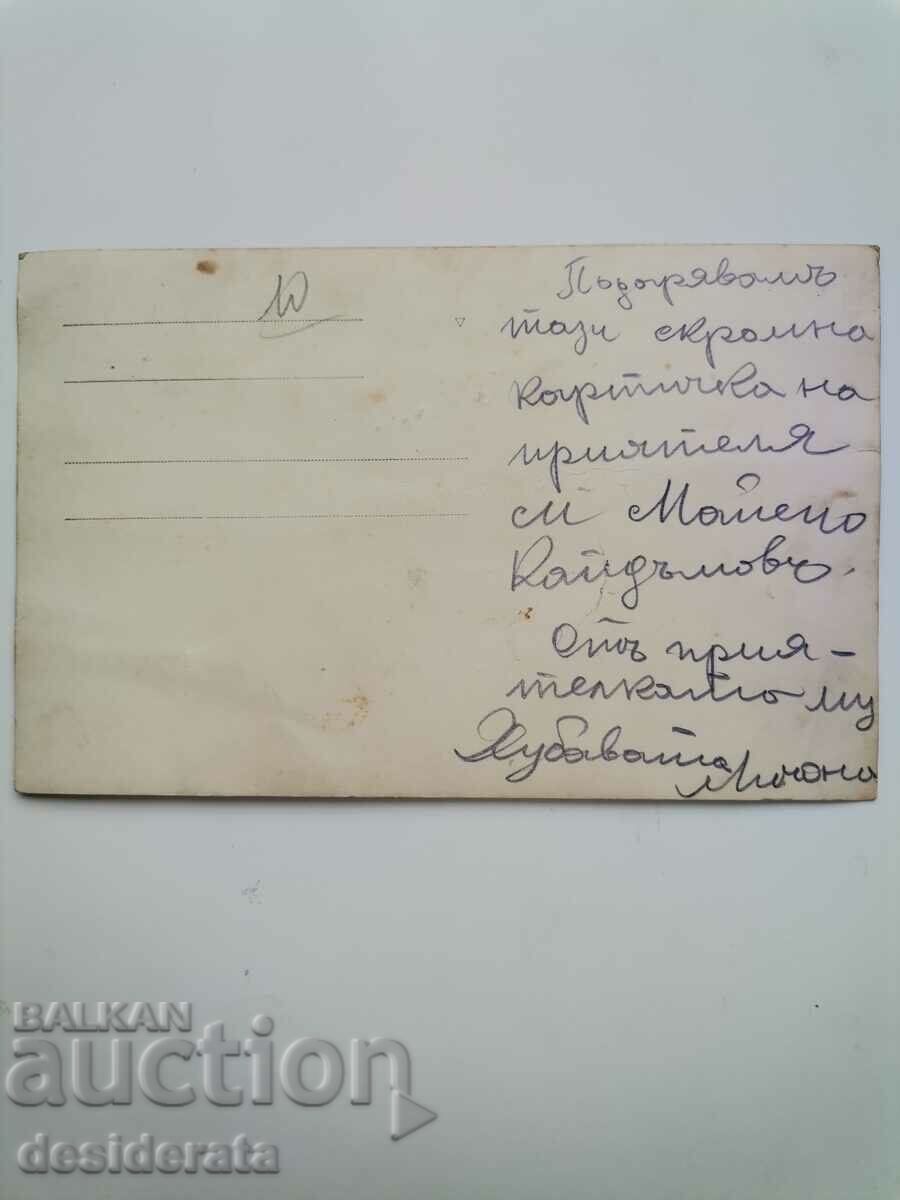 10
Подарявамъ
тази скромна
картичка на
приятеля
си
Кайдъмовъ.
Отъ прия-
телката му
Хубавата
BALKAN
auction
desiderata